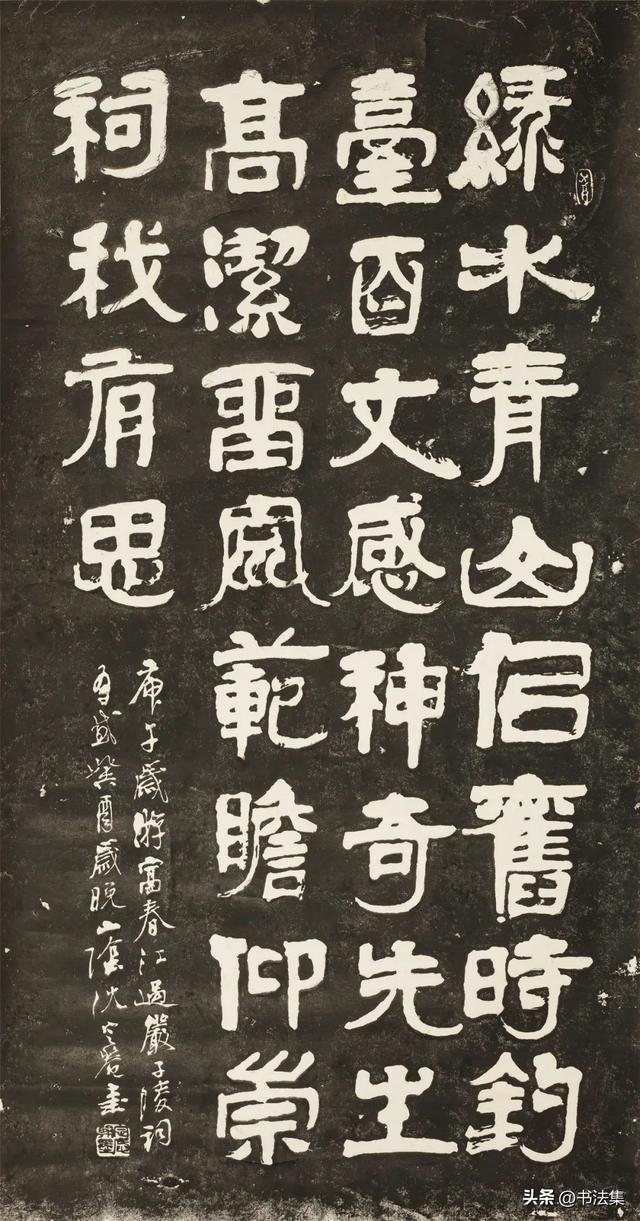 綠水青山佀舊時釣
臺百丈感神奇先生
高潔畱風範瞻仰崇
祠我有思
庚午歲游富春江過嚴子陵祠
有感癸酉歲晚山陰沈定庵書
头条 @书法集